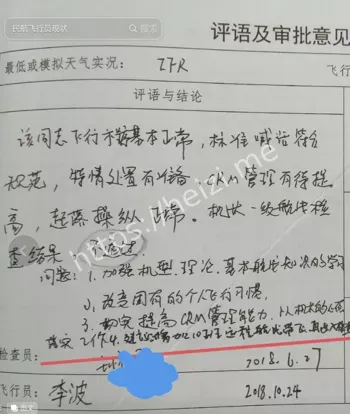 民航飞行员现状
评语及审批意见
最低或模拟天气实况：IFR
飞行
评语与结论
该同志飞行方案基本正常，标准喊话符合
规范，特情处置有准备，CRM管理有待提
高，起落操纵正常。机长一级航线检
查结果 不通过
问题：1.加强机型.理论.基本航线知识的学习
2.改变固有的个人飞行习惯，
3.切实提高CRM管理能力，以机长的
检查员：
2018.6.27
飞行员：李波
2018.10.24
https://heizi.me